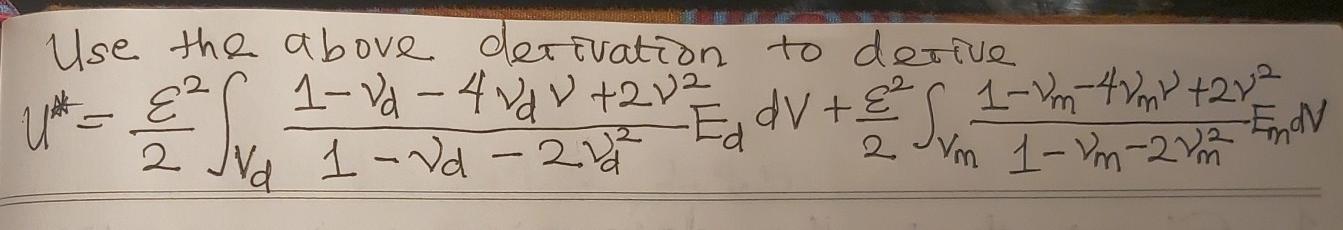 Use the above derivation to derive
U* = ε²/2 ∫_{V_d} (1-ν_d-4ν_dν+2ν²)/(1-ν_d-2ν_d²) E_d dV + ε²/2 ∫_{V_m} (1-ν_m-4ν_mν+2ν²)/(1-ν_m-2ν_m²) E_m dV